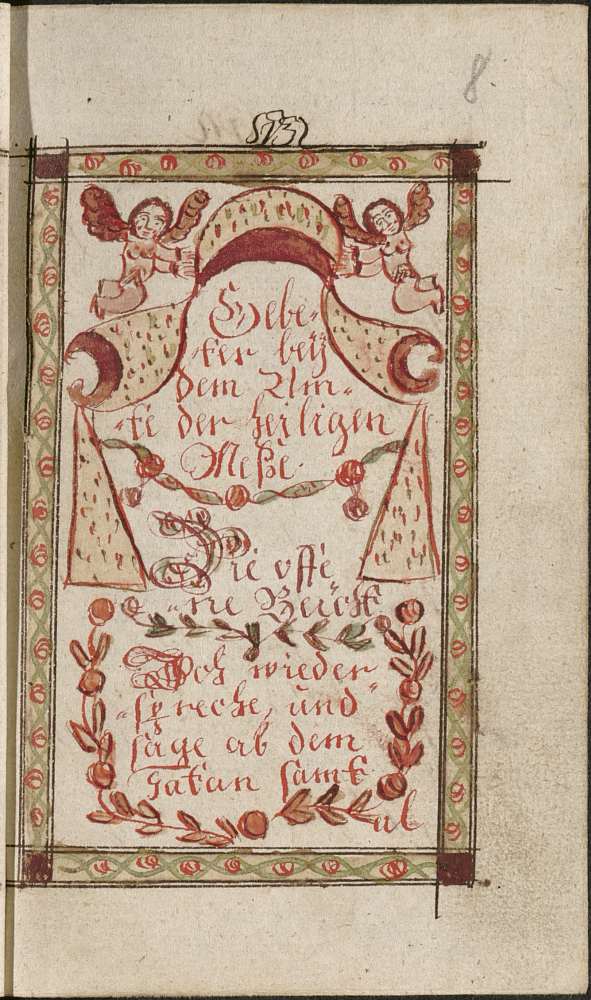 8
(13)
Gebe-
-ter bey
dem Am-
-te der heiligen
Meße.
Die offe
-ne Beicht
Ich wieder
-spreche, und
sage ab dem
Satan samt
al